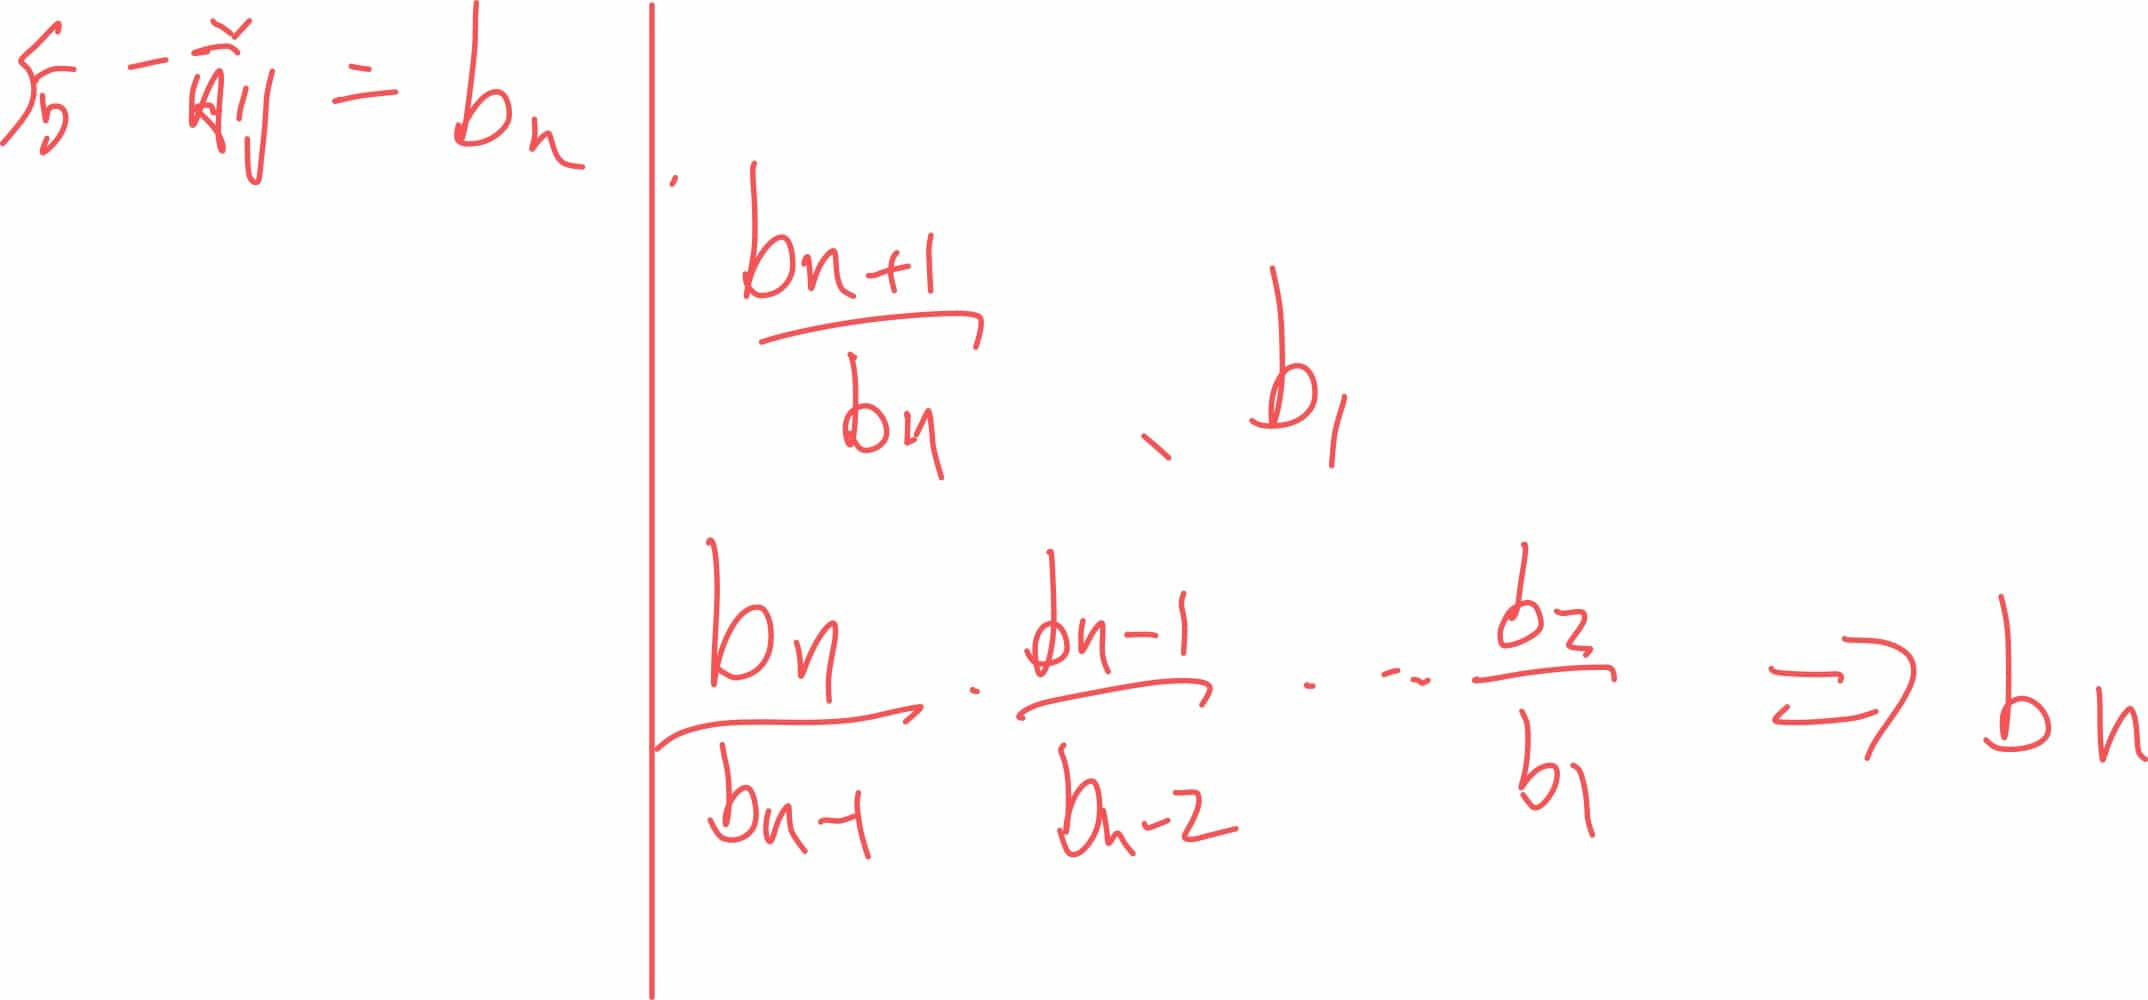 后 - 前 = bₙ
bn+1
bn 、 b₁
bn/bn-1 · bn-1/bn-2 · ··· b2/b1 ⇒ bn